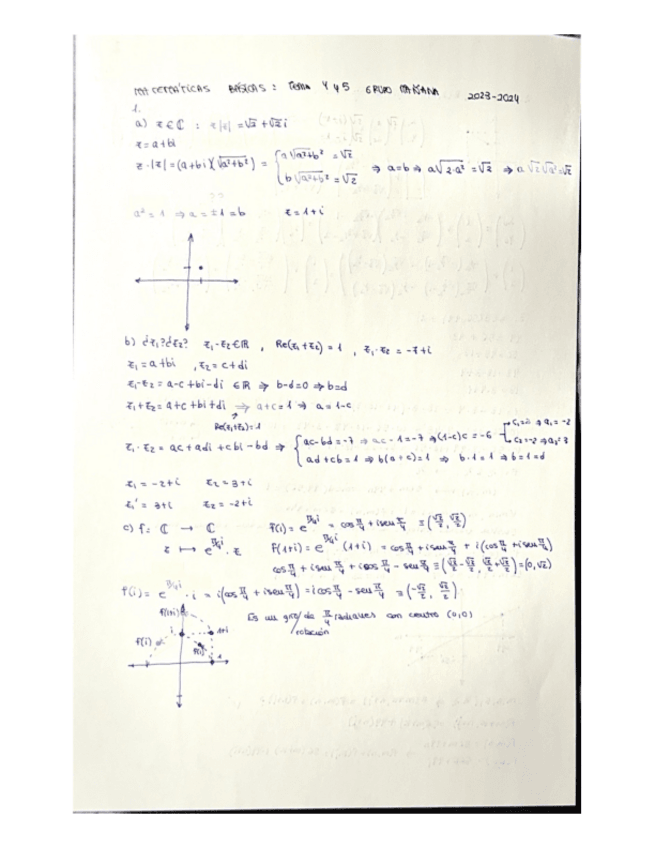 MATEMÁTICAS BÁSICAS: TEMA 4 y 5 GRUPO MAÑANA 2023-2024
1.
a) z ∈ ℂ : z|z| = √2 + √2 i
z = a+bi
z·|z| = (a+bi)(√a²+b²) = { a√a²+b² = √2 ; b√a²+b² = √2 ⇒ a=b ⇒ a√2·a² = √2 ⇒ a√2√a² = √2
a² = 1 ⇒ a = ±1 = b z = 1+i
b) ¿z₁? ¿z₂? z₁-z₂ ∈ ℝ , Re(z₁+z₂) = 1 , z₁·z₂ = -7+i
z₁ = a+bi , z₂ = c+di
z₁-z₂ = a-c+bi-di ∈ ℝ ⇒ b-d=0 ⇒ b=d
z₁+z₂ = a+c+bi+di ⇒ a+c=1 ⇒ a=1-c
Re(z₁+z₂)=1
z₁·z₂ = ac+adi+cbi-bd ⇒ { ac-bd=-7 ⇒ ac-1=-7 ⇒ (1-c)c=-6 ; c₂=-2 ⇒ a₂=3
ad+cb=1 ⇒ b(a+c)=1 ⇒ b·1=1 ⇒ b=1=d
z₁ = -2+i z₂ = 3+i
z₁' = 3+i z₂ = -2+i
c) f: ℂ → ℂ f(1) = e^{π/4 i} = cos π/4 + i sen π/4 ≡ (√2/2, √2/2)
z ↦ e^{π/4 i}·z f(1+i) = e^{π/4 i}(1+i) = cos π/4 + i sen π/4 + i(cos π/4 + i sen π/4)
cos π/4 + i sen π/4 + i cos π/4 - sen π/4 ≡ (√2/2-√2/2, √2/2+√2/2) = (0,√2)
f(i) = e^{π/4 i}·i = i(cos π/4 + i sen π/4) = i cos π/4 - sen π/4 ≡ (-√2/2, √2/2)
f(1+i)
Es un giro/de π/4 radianes con centro (0,0)
rotación
f(i) i 1+i
f(1)
1